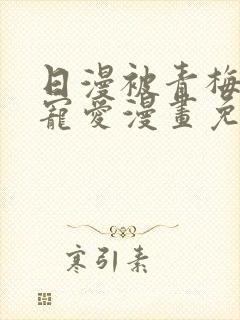 日漫被青梅
寵愛漫畫免
寒引素